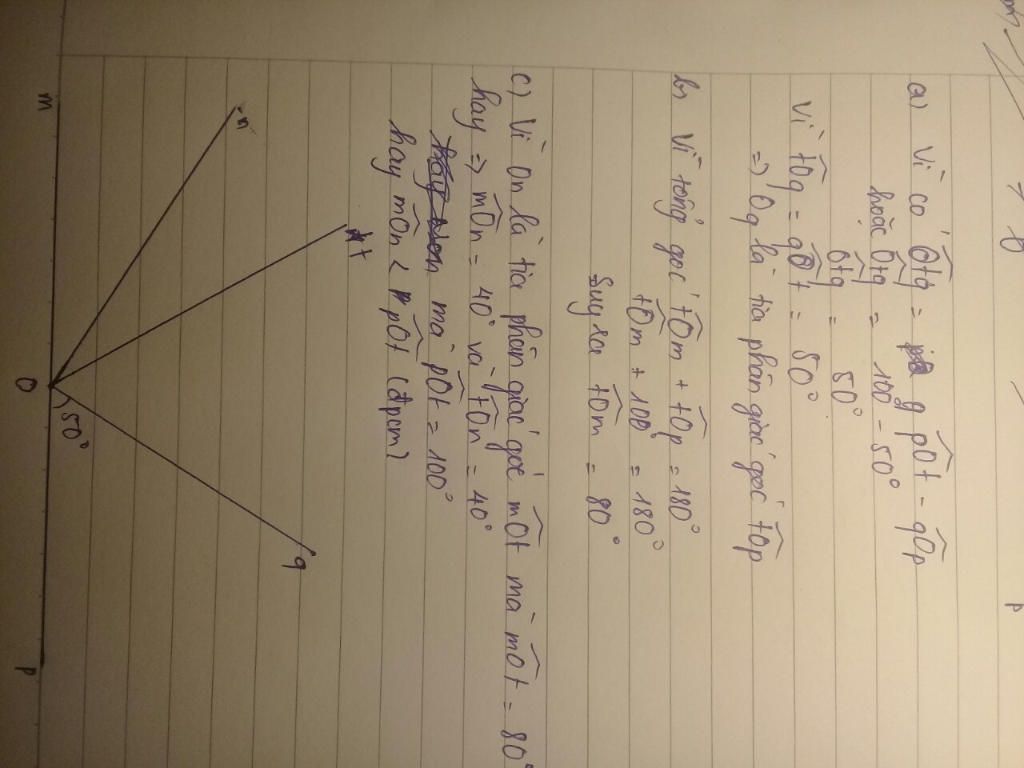 a) Vì có Ôtq = pÔt - qÔp
hoặc Ôtq = 100 - 50°
Ôtq = 50°
Vì tÔq = qÔt = 50°
=) Oq là tia phân giác góc tÔp
b) Vì tổng góc tÔm + tÔp = 180°
tÔm + 100° = 180°
Suy ra tÔm = 80°
c) Vì On là tia phân giác góc mÔt mà mÔt = 80°
hay => mÔn = 40° và tÔn = 40°
mà pÔt = 100°
hay mÔn < pÔt (đpcm)
m
n
t
O
50°
q
p